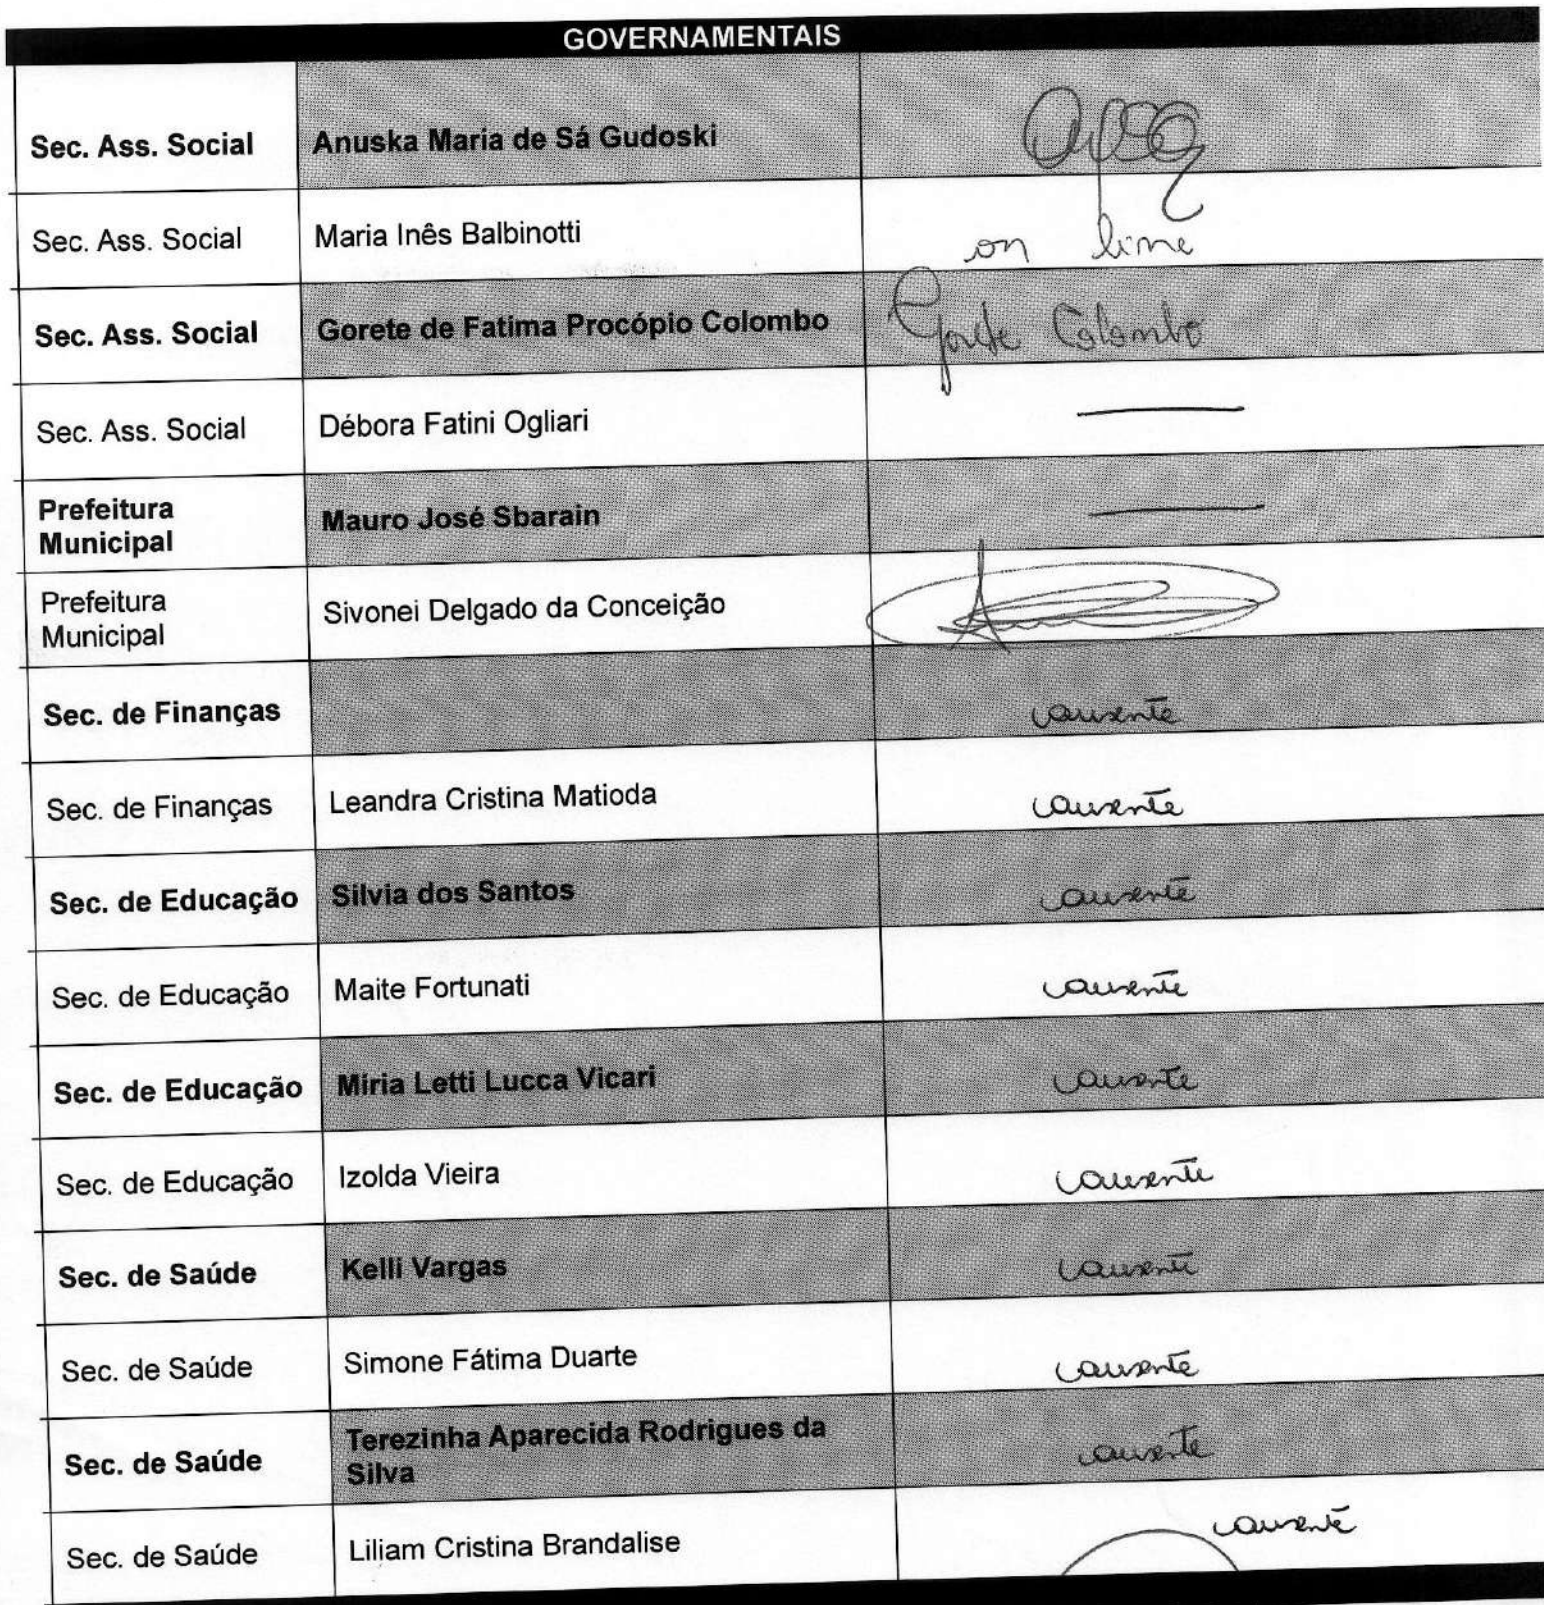 GOVERNAMENTAIS
Sec. Ass. Social Anuska Maria de Sá Gudoski
Sec. Ass. Social Maria Inês Balbinotti on line
Sec. Ass. Social Gorete de Fatima Procópio Colombo Gorete Colombo
Sec. Ass. Social Débora Fatini Ogliari
Prefeitura
Municipal Mauro José Sbarain
Prefeitura
Municipal Sivonei Delgado da Conceição
Sec. de Finanças ausente
Sec. de Finanças Leandra Cristina Matioda ausente
Sec. de Educação Silvia dos Santos ausente
Sec. de Educação Maite Fortunati ausente
Sec. de Educação Miria Letti Lucca Vicari ausente
Sec. de Educação Izolda Vieira ausente
Sec. de Saúde Kelli Vargas ausente
Sec. de Saúde Simone Fátima Duarte ausente
Sec. de Saúde Terezinha Aparecida Rodrigues da
Silva ausente
Sec. de Saúde Liliam Cristina Brandalise ausente